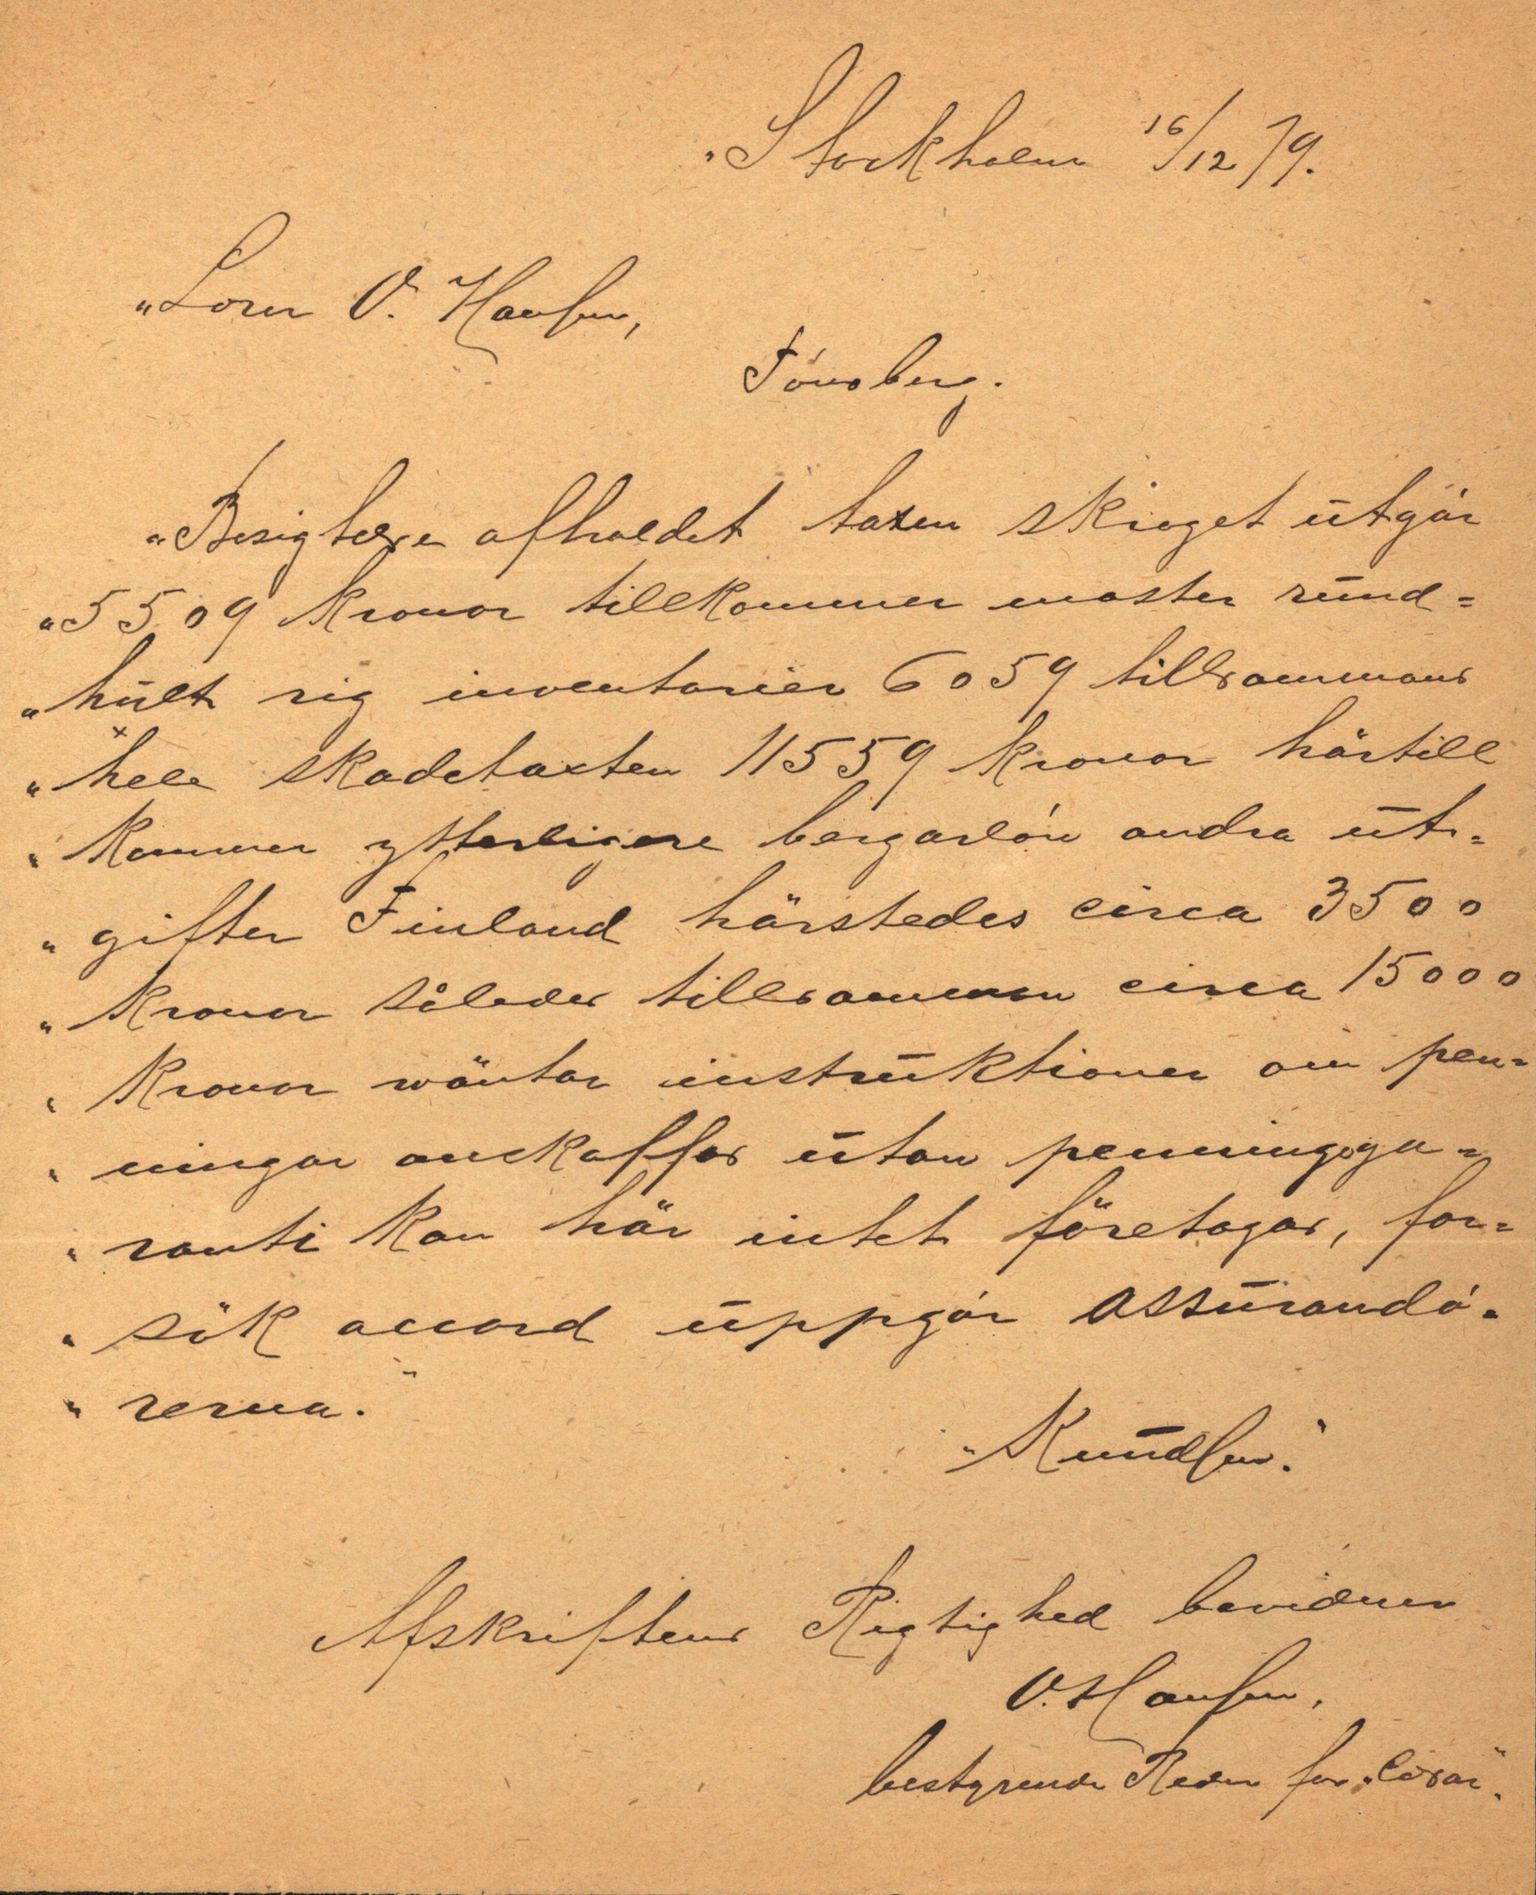 „Stockholm 16/12 79.
„Lorer O. Hansen,
Tönsberg.
„Besigtelse afholdet taxen skroget utgör
„5509 kronor tillkommer master rund=
„hult rig inventarier 6059 tillsammans
„hele skadetaxten 11559 kronor härtill
„kommer ytterligere bergarlön andra ut=
„gifter Finland härstedes circa 3500
„kronor således tillsamman circa 15000
„kronor wäntar instruktioner om pen=
„ningar anskaffas utan penningega=
„ranti kan här intet företagas, for=
„sök accord uppgör assurandö=
„rerna."
„Knudsen."
Afskriftens Rigtighed bevidner
O. Hansen,
bestyrende Reder for „Cæsar".